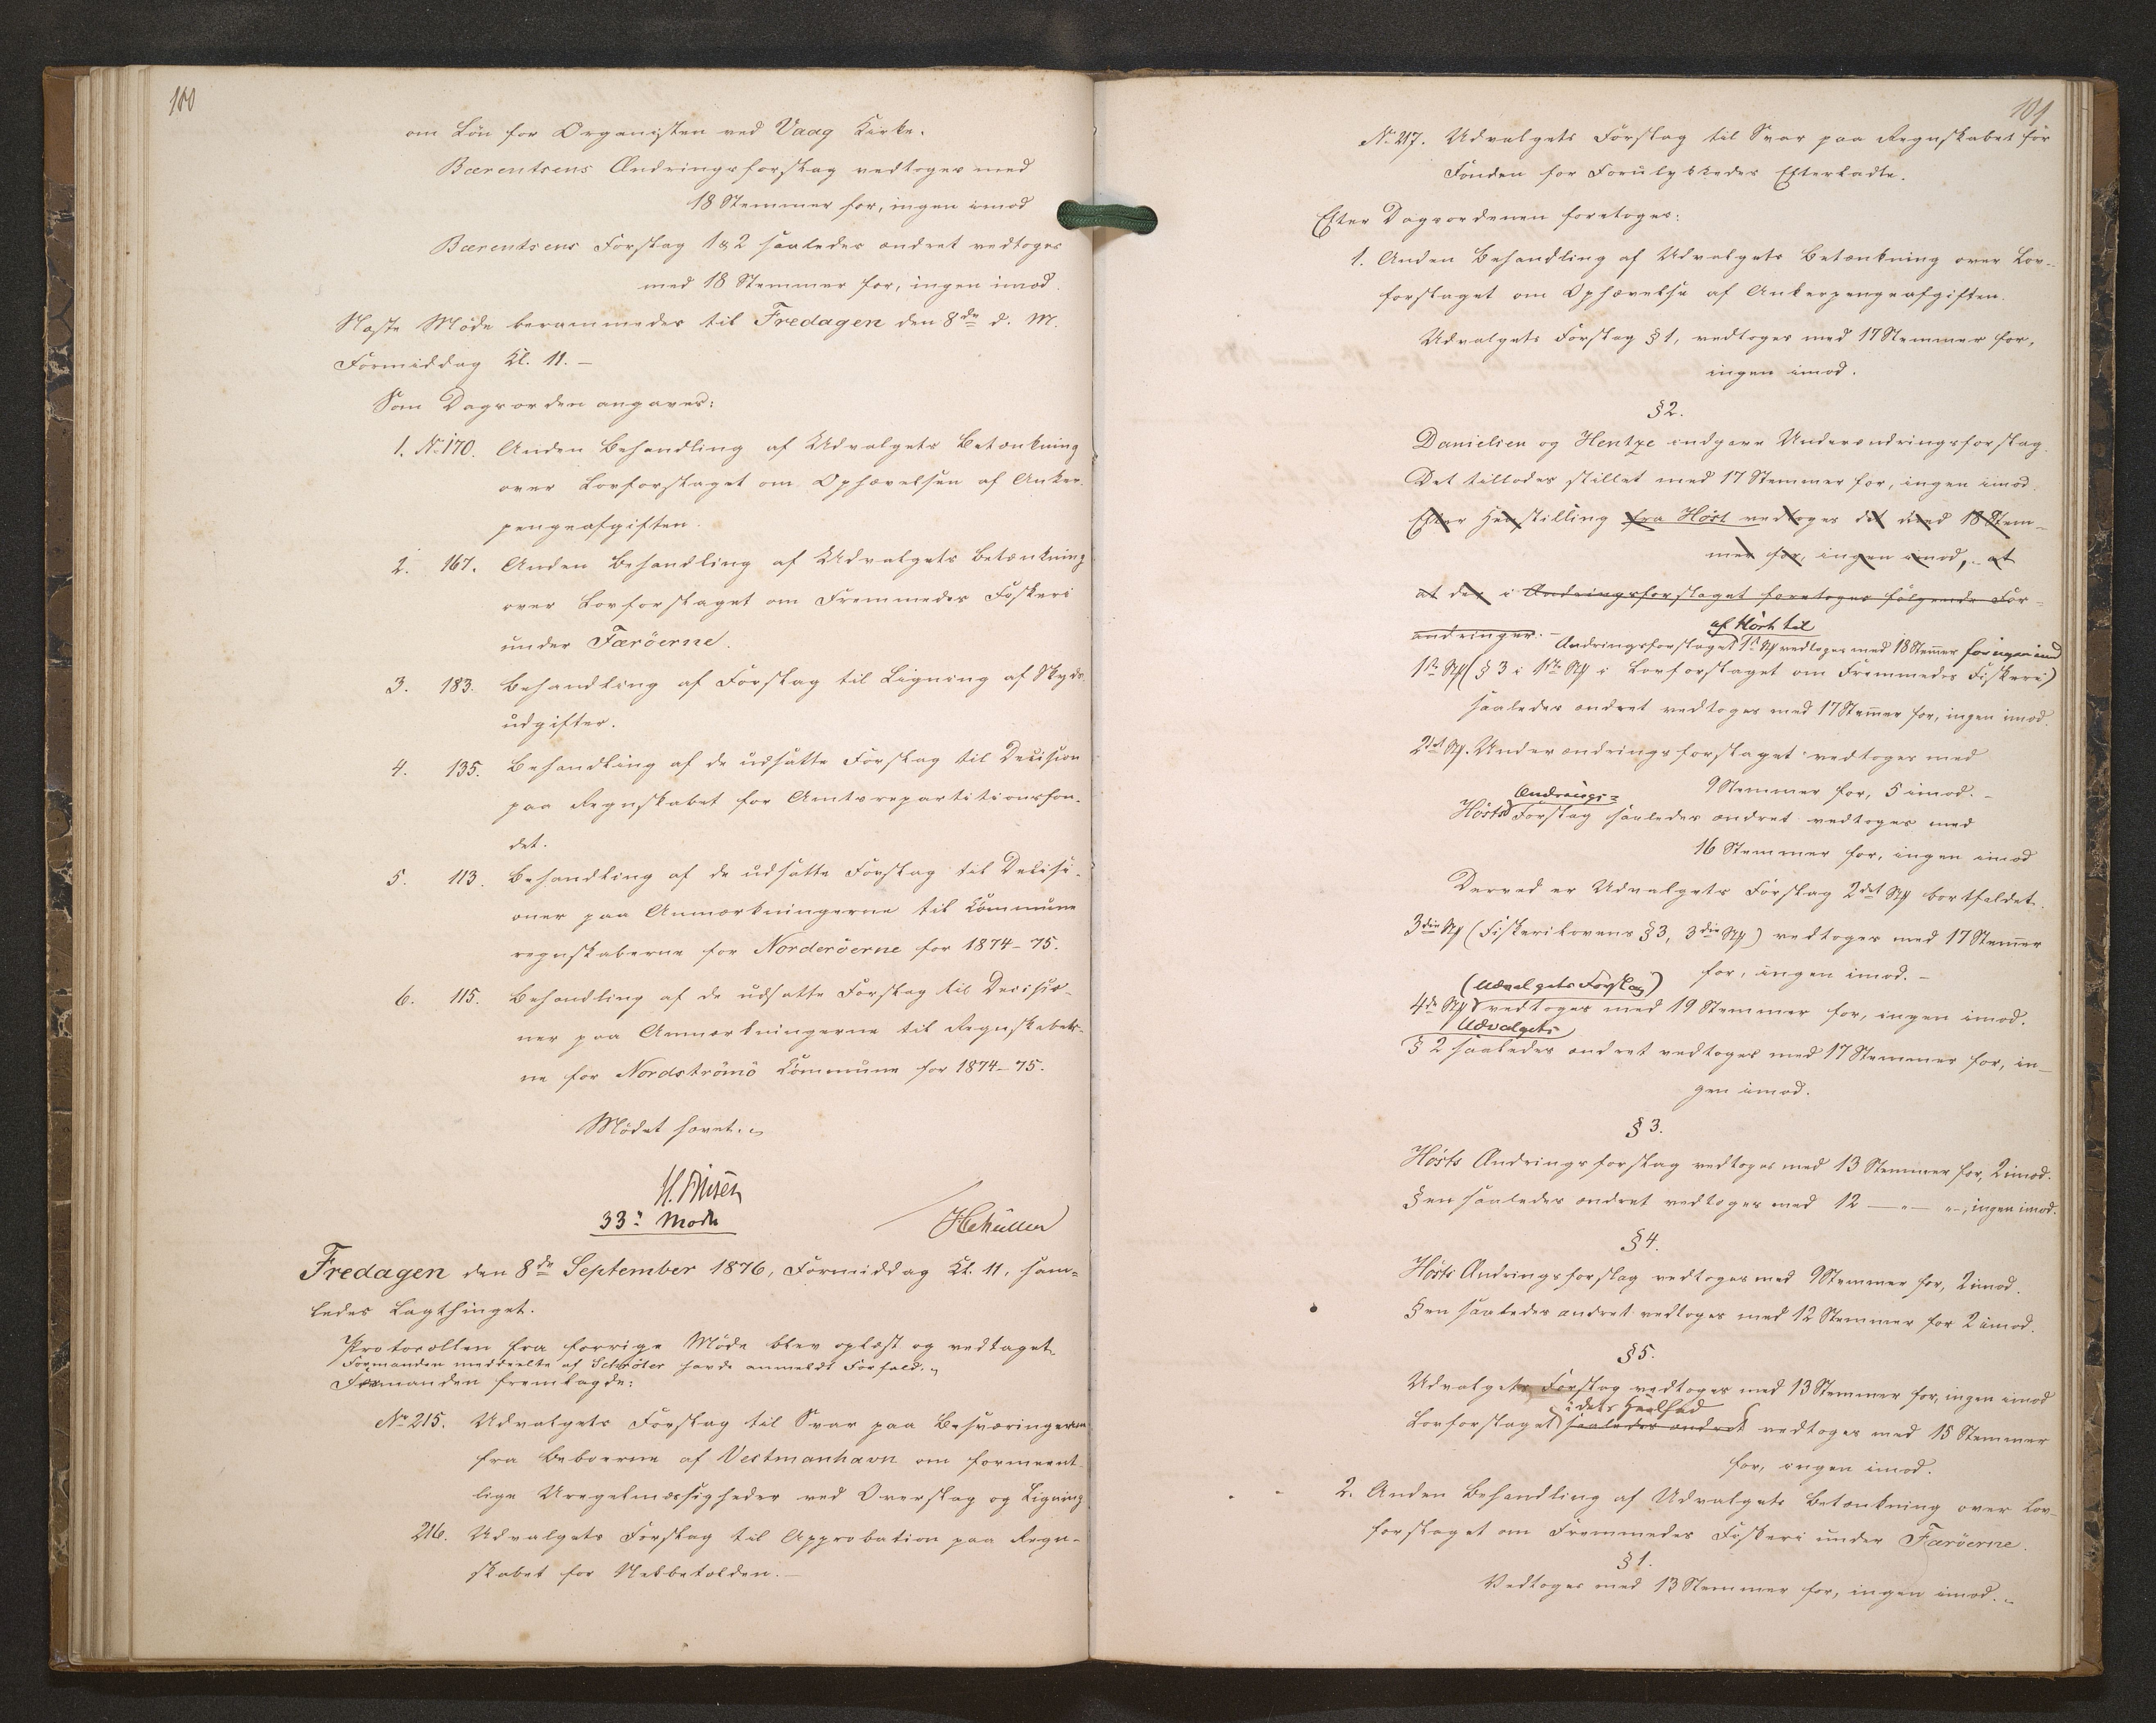 100
om Løn for Organisten ved Vaag Kirke.
Bærentsens Ændringsforslag vedtoges med
18 Stemmer for, ingen imod
Bærentsens Forslag 1 & 2 saaledes ændret vedtoges
med 18 Stemmer for, ingen imod.
Næste Møde berammedes til Fredagen den 8de d. M.
Formiddag Kl. 11. –
Som Dagsorden angaves:
1. No 170. Anden Behandling af Udvalgets Betænkning
over Lovforslaget om Ophævelsen af Anker-
pengeafgiften.
2. 167. Anden Behandling af Udvalgets Betænkning
over Lovforslaget om Fremmedes Fiskeri
under Færöerne.
3. 183. Behandling af Forslag til Ligning af Skyds-
udgifter.
4. 135. Behandling af de udsatte Forslag til Decision
paa Regnskabet for Amtsrepartitionsfon-
det.
5. 113. Behandling af de udsatte Forslag til Decisi-
oner paa Anmærkningerne til Kommune
regnskaberne for Norderöerne for 1874–75.
6. 115. Behandling af de udsatte Forslag til Decisio-
ner paa Anmærkningerne til Regnskaber-
ne for Nordströmö Kommune for 1874–75.
Mödet hævet.
33' Møde
Fredagen den 8de September 1876, Formiddag Kl. 11, sam-
ledes Lagthinget.
Protocollen fra forrige Möde blev oplæst og vedtaget.
Formanden meddeelte at Schröter havde anmeldt Forfald.
Formanden fremlagde:
No 215. Udvalgets Forslag til Svar paa Besværingerne
fra Beboerne af Vestmanhavn om formeent-
lige Uregelmæssigheder ved Overslag og Ligning
216. Udvalgets Forslag til Approbation paa Regn-
skabet for Nebbetolden. –
101
No 217. Udvalgets Forslag til Svar paa Regnskabet for
Fonden for Forulykkedes Efterladte.
Efter Dagsordenen foretoges:
1. Anden Behandling af Udvalgets Betænkning over Lov-
forslaget om Ophævelse af Ankerpengeafgiften.
Udvalgets Forslag § 1, vedtoges med 17 Stemmer for,
ingen imod.
§ 2.
Danielsen og Hentze indgave Underændringsforslag.
Det tillodes stillet med 17 Stemmer for, ingen imod.
Efter Henstilling fra Høst vedtoges det med 18 Stem-
mer for, ingen imod, at
at der i Ændringsforslaget foretoges følgende For-
andringer. –
af Høst til
Ændringsforslaget 1ste St vedtoges med 18 Stemer for ingen imod
1ste St (§ 3 i 1ste St i Lovforslaget om Fremmedes Fiskeri)
saaledes ændret vedtoges med 17 Stemer for, ingen imod.
2det St. Underændringsforslaget vedtoges med
9 Stemmer for, 5 imod. –
Ændrings-
Høsts Forslag saaledes ændret vedtoges med
16 Stemmer for, ingen imod
Derved er Udvalgets Forslag 2det St bortfaldet.
3die St (Fiskerilovens § 3, 3die St) vedtoges med 17 Stemer
for, ingen imod. –
(Udvalgets Forslag)
4de St vedtoges med 19 Stemmer for, ingen imod.
Udvalgets
§ 2 saaledes ændret vedtoges med 17 Stemmer for, in-
gen imod.
§ 3.
Høsts Ændringsforslag vedtoges med 13 Stemmer for, 2 imod.
§en saaledes ændret vedtoges med 12 — " — " –, ingen imod.
§ 4.
Høsts Ændringsforslag vedtoges med 9 Stemmer for, 2 imod.
§en saaledes ændret vedtoges med 12 Stemmer for 2 imod.
§ 5.
Udvalgets Forslag vedtoges med 13 Stemmer for, ingen imod
i dets Heelhed
Lovforslaget saaledes ændret vedtoges med 15 Stemmer
for, ingen imod.
2. Anden Behandling af Udvalgets Betænkning over Lov-
forslaget om Fremmedes Fiskeri under Færöerne.
§ 1.
Vedtoges med 13 Stemmer for, ingen imod. –